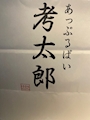 あっぷるぱい
考太郎